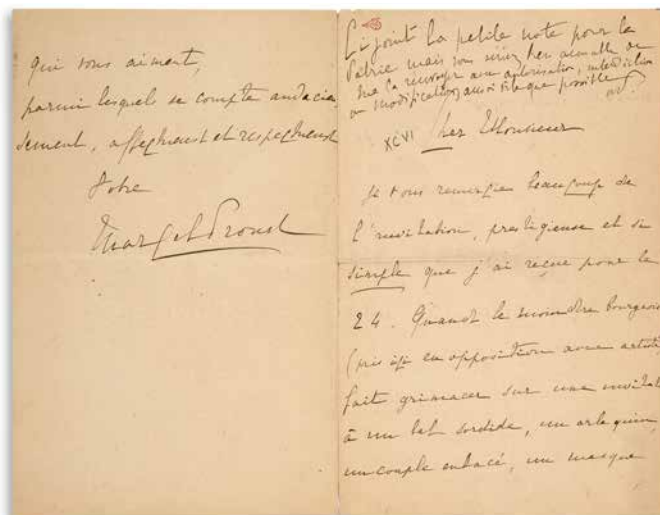 qui vous aiment,
parmi lesquels se compte audacieu
sement, affectueux et respectueux
Votre
Marcel Proust
Ci joint la petite note pour la
Patrie mais vous seriez bien aimable de
me la renvoyer avec autorisation, interdiction
ou modifications aussi vite que possible
XCVI Cher Monsieur
Je vous remercie beaucoup de
l'invitation, prestigieuse et si
simple que j'ai reçue pour le
24. Quand le moindre bourgeois
(pris ici en opposition avec artiste
fait grimacer sur une invitat
à un bal sordide, un arlequin,
un couple enlacé, un masque